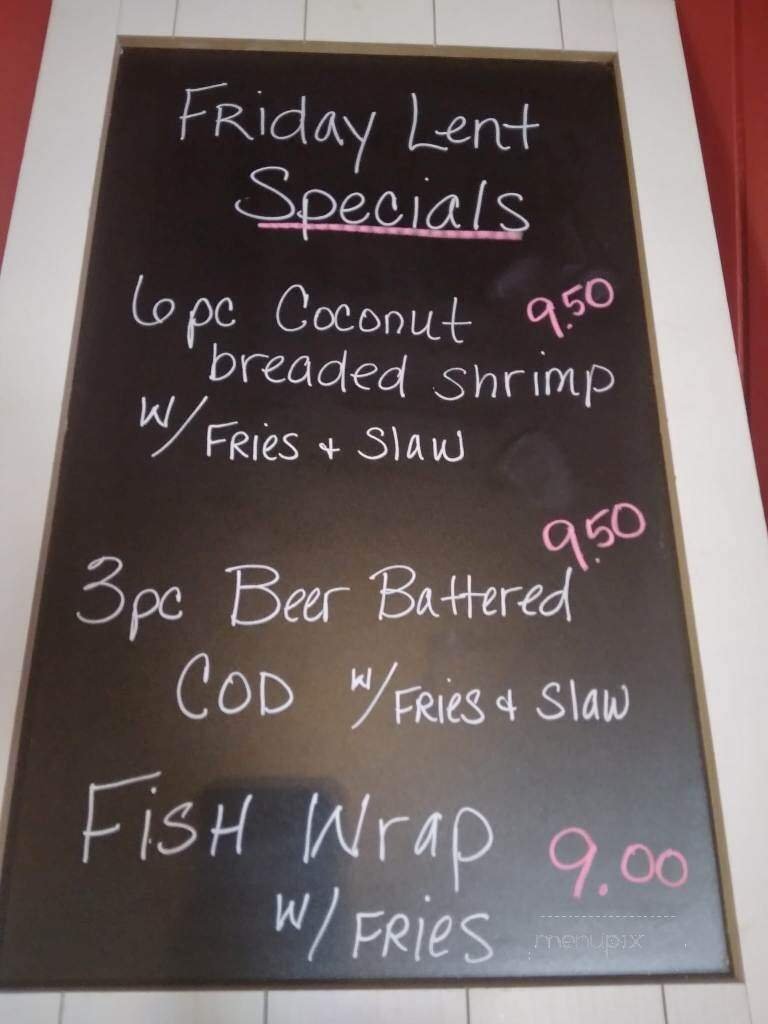 Friday Lent
Specials
6pc Coconut 9.50
breaded shrimp
w/ Fries + Slaw
9.50
3pc Beer Battered
COD w/ Fries & Slaw
Fish Wrap 9.00
w/ Fries
menupix